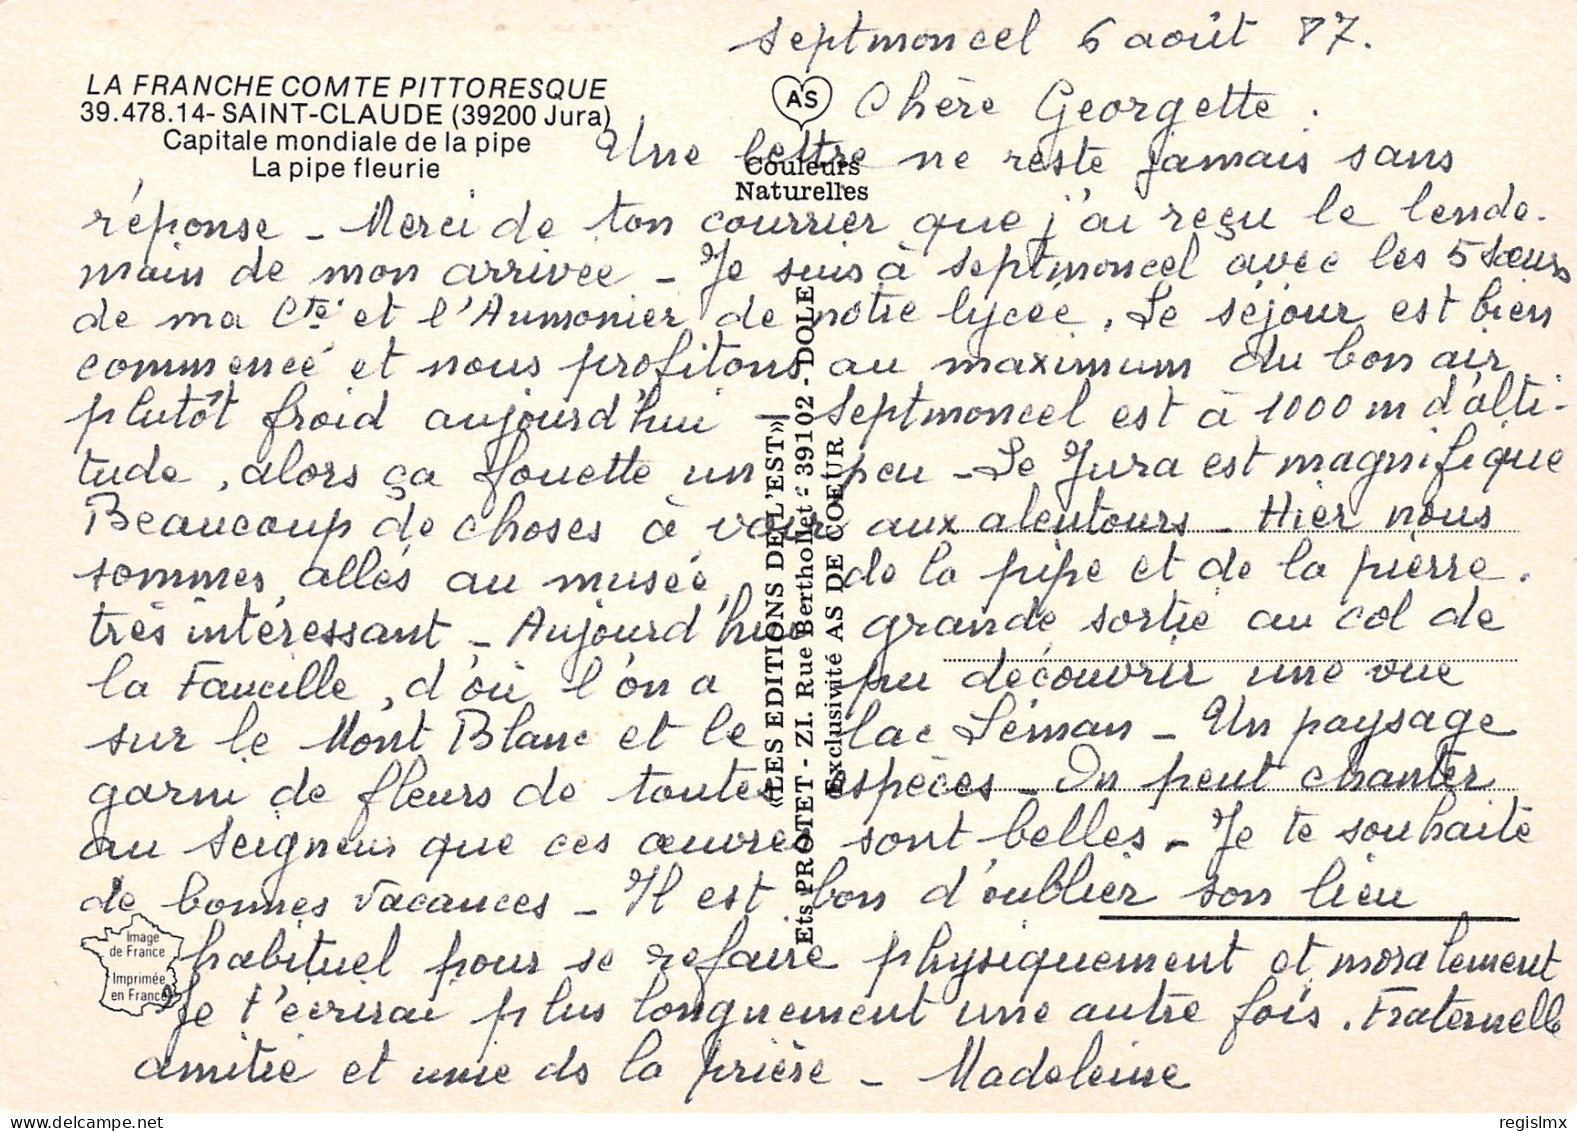 Septmoncel 6 août 87.
LA FRANCHE COMTE PITTORESQUE
39.478.14- SAINT-CLAUDE (39200 Jura)
Capitale mondiale de la pipe
La pipe fleurie
AS
Couleurs
Naturelles
Chère Georgette.
Une lettre ne reste jamais sans
réponse - Merci de ton courrier que j'ai reçu le lende-
main de mon arrivée - Je suis à Septmoncel avec les 5 sœurs
de ma Cté et l'Aumonier de notre lycée. Le séjour est bien
commencé et nous profitons au maximum du bon air
plutôt froid aujourd'hui - Septmoncel est à 1000 m d'alti-
tude, alors ça fouette un peu - Le Jura est magnifique
Beaucoup de choses à voir aux alentours - Hier nous
sommes allés au musée de la pipe et de la pierre.
très intéressant - Aujourd'hui grande sortie au col de
la Faucille, d'où l'on a pu découvrir une vue
sur le Mont Blanc et le lac Léman - Un paysage
garni de fleurs de toutes espèces - On peut chanter
au Seigneur que ces œuvres sont belles - Je te souhaite
de bonnes vacances - Il est bon d'oublier son lieu
habituel pour se refaire physiquement et moralement
Je t'écrirai plus longuement une autre fois. Fraternelle
amitié et unie ds la prière - Madeleine
«LES EDITIONS DE L'EST»
Ets PROTET - ZI. Rue Berthollet - 39102 - DOLE
Exclusivité AS DE COEUR
Image
de France
Imprimée
en France
regislmx